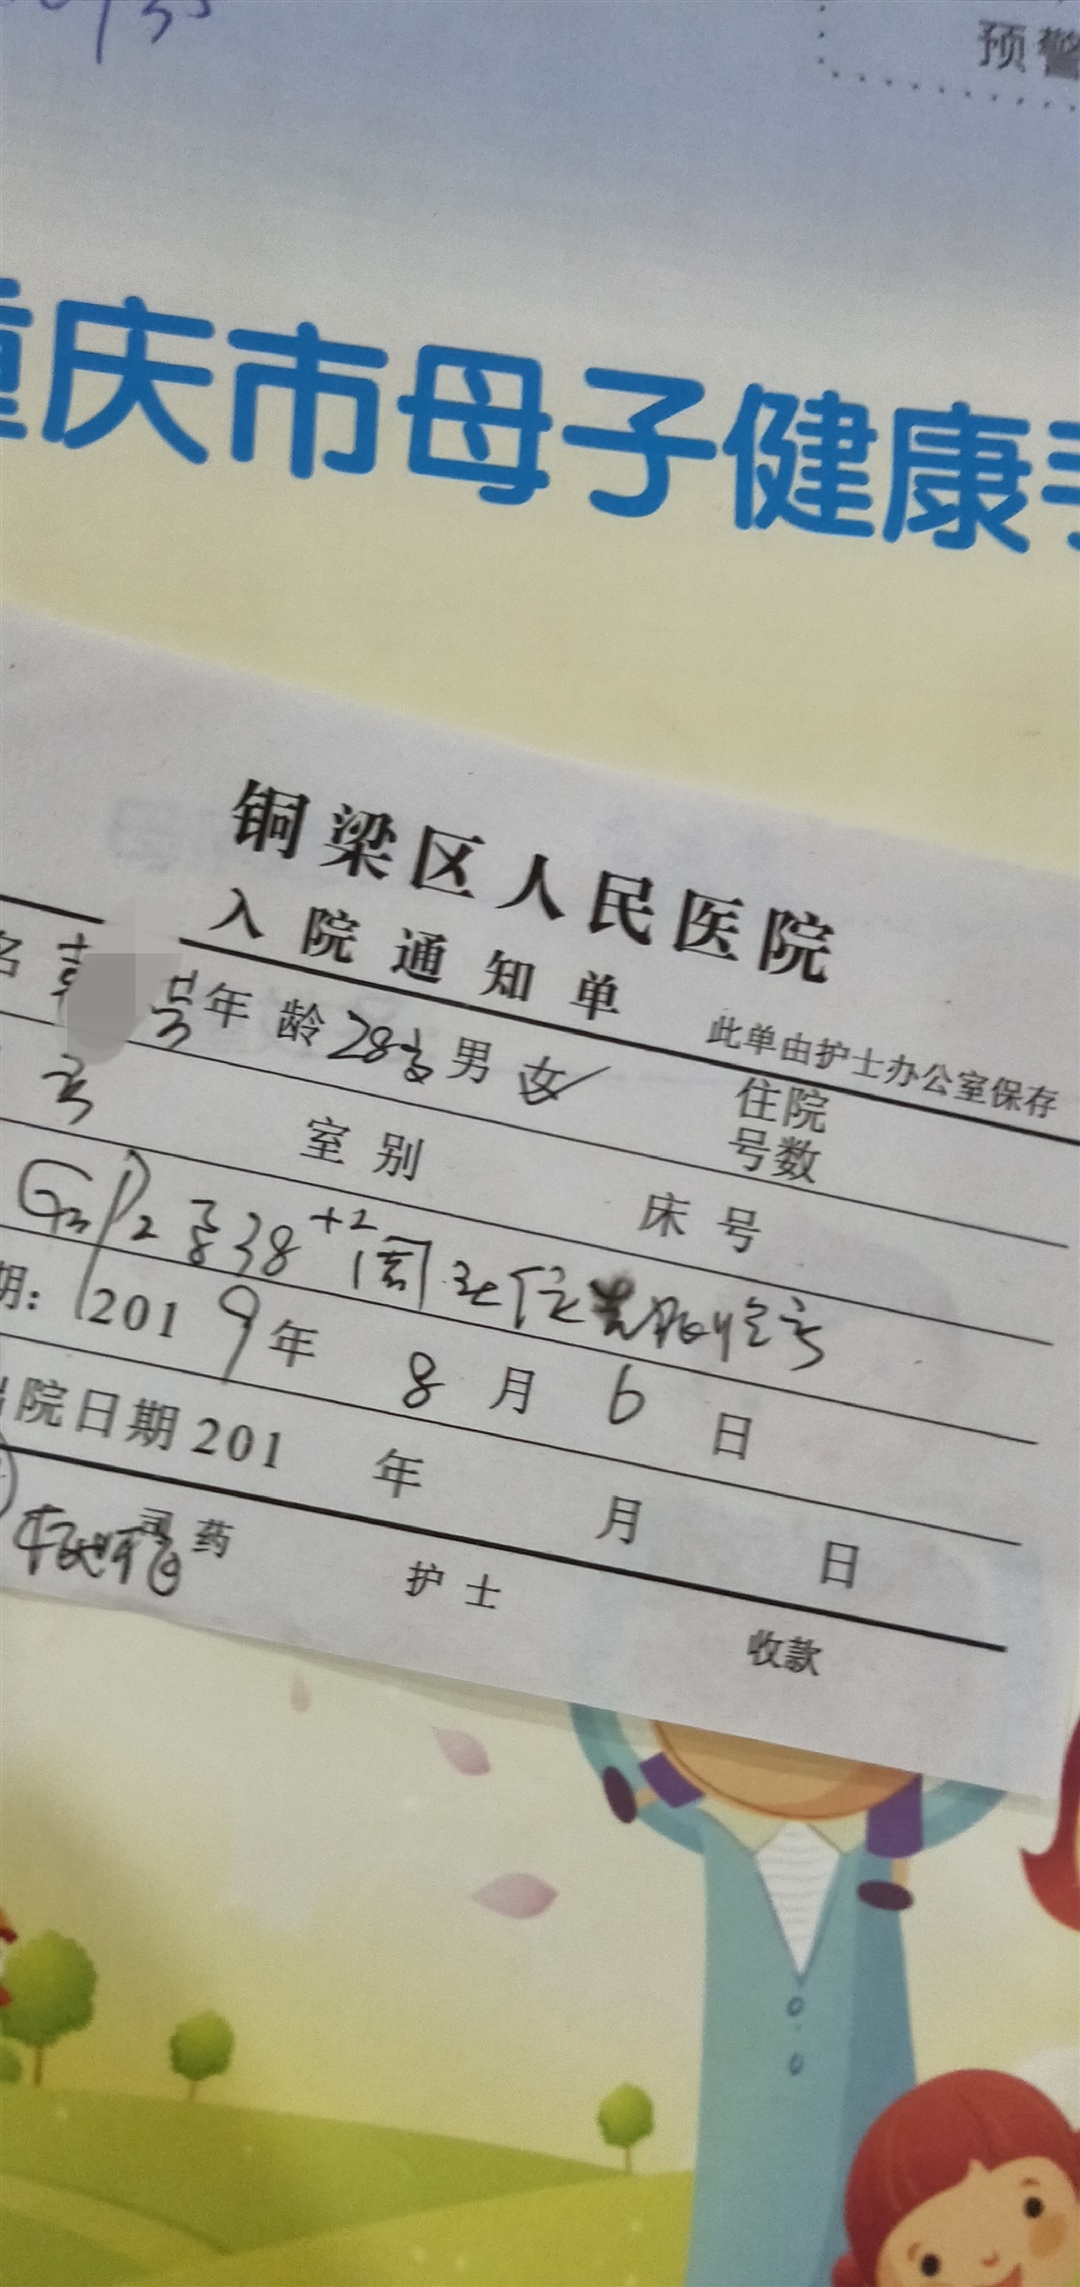 预警
重庆市母子健康手
铜梁区人民医院
入院通知单
此单由护士办公室保存
名 年龄28岁 男 女✓ 住院号数
室别 床号
G3P2孕38+2周
期: 2019年 8月 6日
出院日期 201 年 月 日
司药 护士 收款